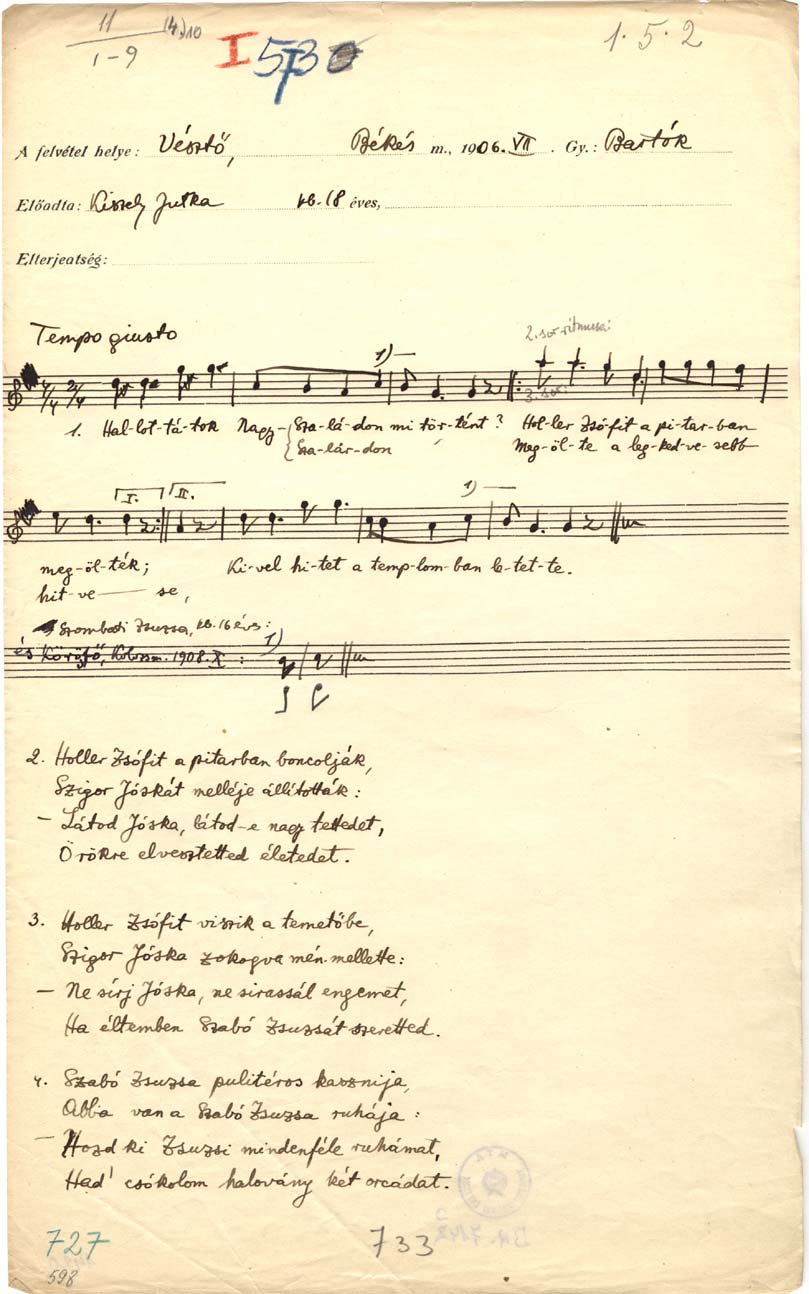 11 (4)10
1-9
I 5730
1. 5. 2
A felvétel helye: Vésztő, Békés m., 1906. VII. Gy.: Bartók
Előadta: Kiszely Jutka kb. 18 éves,
Elterjedtség:
Tempo giusto
2. sor ritmusa:
1)
3. sor:
1. Hal-lot-tá-tok Nagy- Sza-lá-don mi tör-tént? Hol-ler Zsófit a pi-tar-ban
Sza-lár-don Meg-öl-te a leg-ked-ve-sebb
I. II. 1)
meg-öl-ték; Ki-vel hi-tet a temp-lom-ban le-tet-te.
hit-ve se,
Szombati Zsuzsa, kb. 16 éves:
és Körösfő, Kolozsm. 1908. X: 1)
2. Holler Zsófit a pitarban boncolják,
Szigor Jóskát melléje állították:
– Látod Jóska, látod-e nagy tettedet,
Örökre elvesztetted életedet.
3. Holler Zsófit viszik a temetőbe,
Szigor Jóska zokogva mén mellette:
– Ne sírj Jóska, ne sirassál engemet,
Ha éltemben Szabó Zsuzsát szeretted.
4. Szabó Zsuzsa pulitéros kasznija,
Abba van a Szabó Zsuzsa ruhája:
– Hozd ki Zsuzsi mindenféle ruhámat,
Had' csókolom halovány két orcádat.
727
733
598